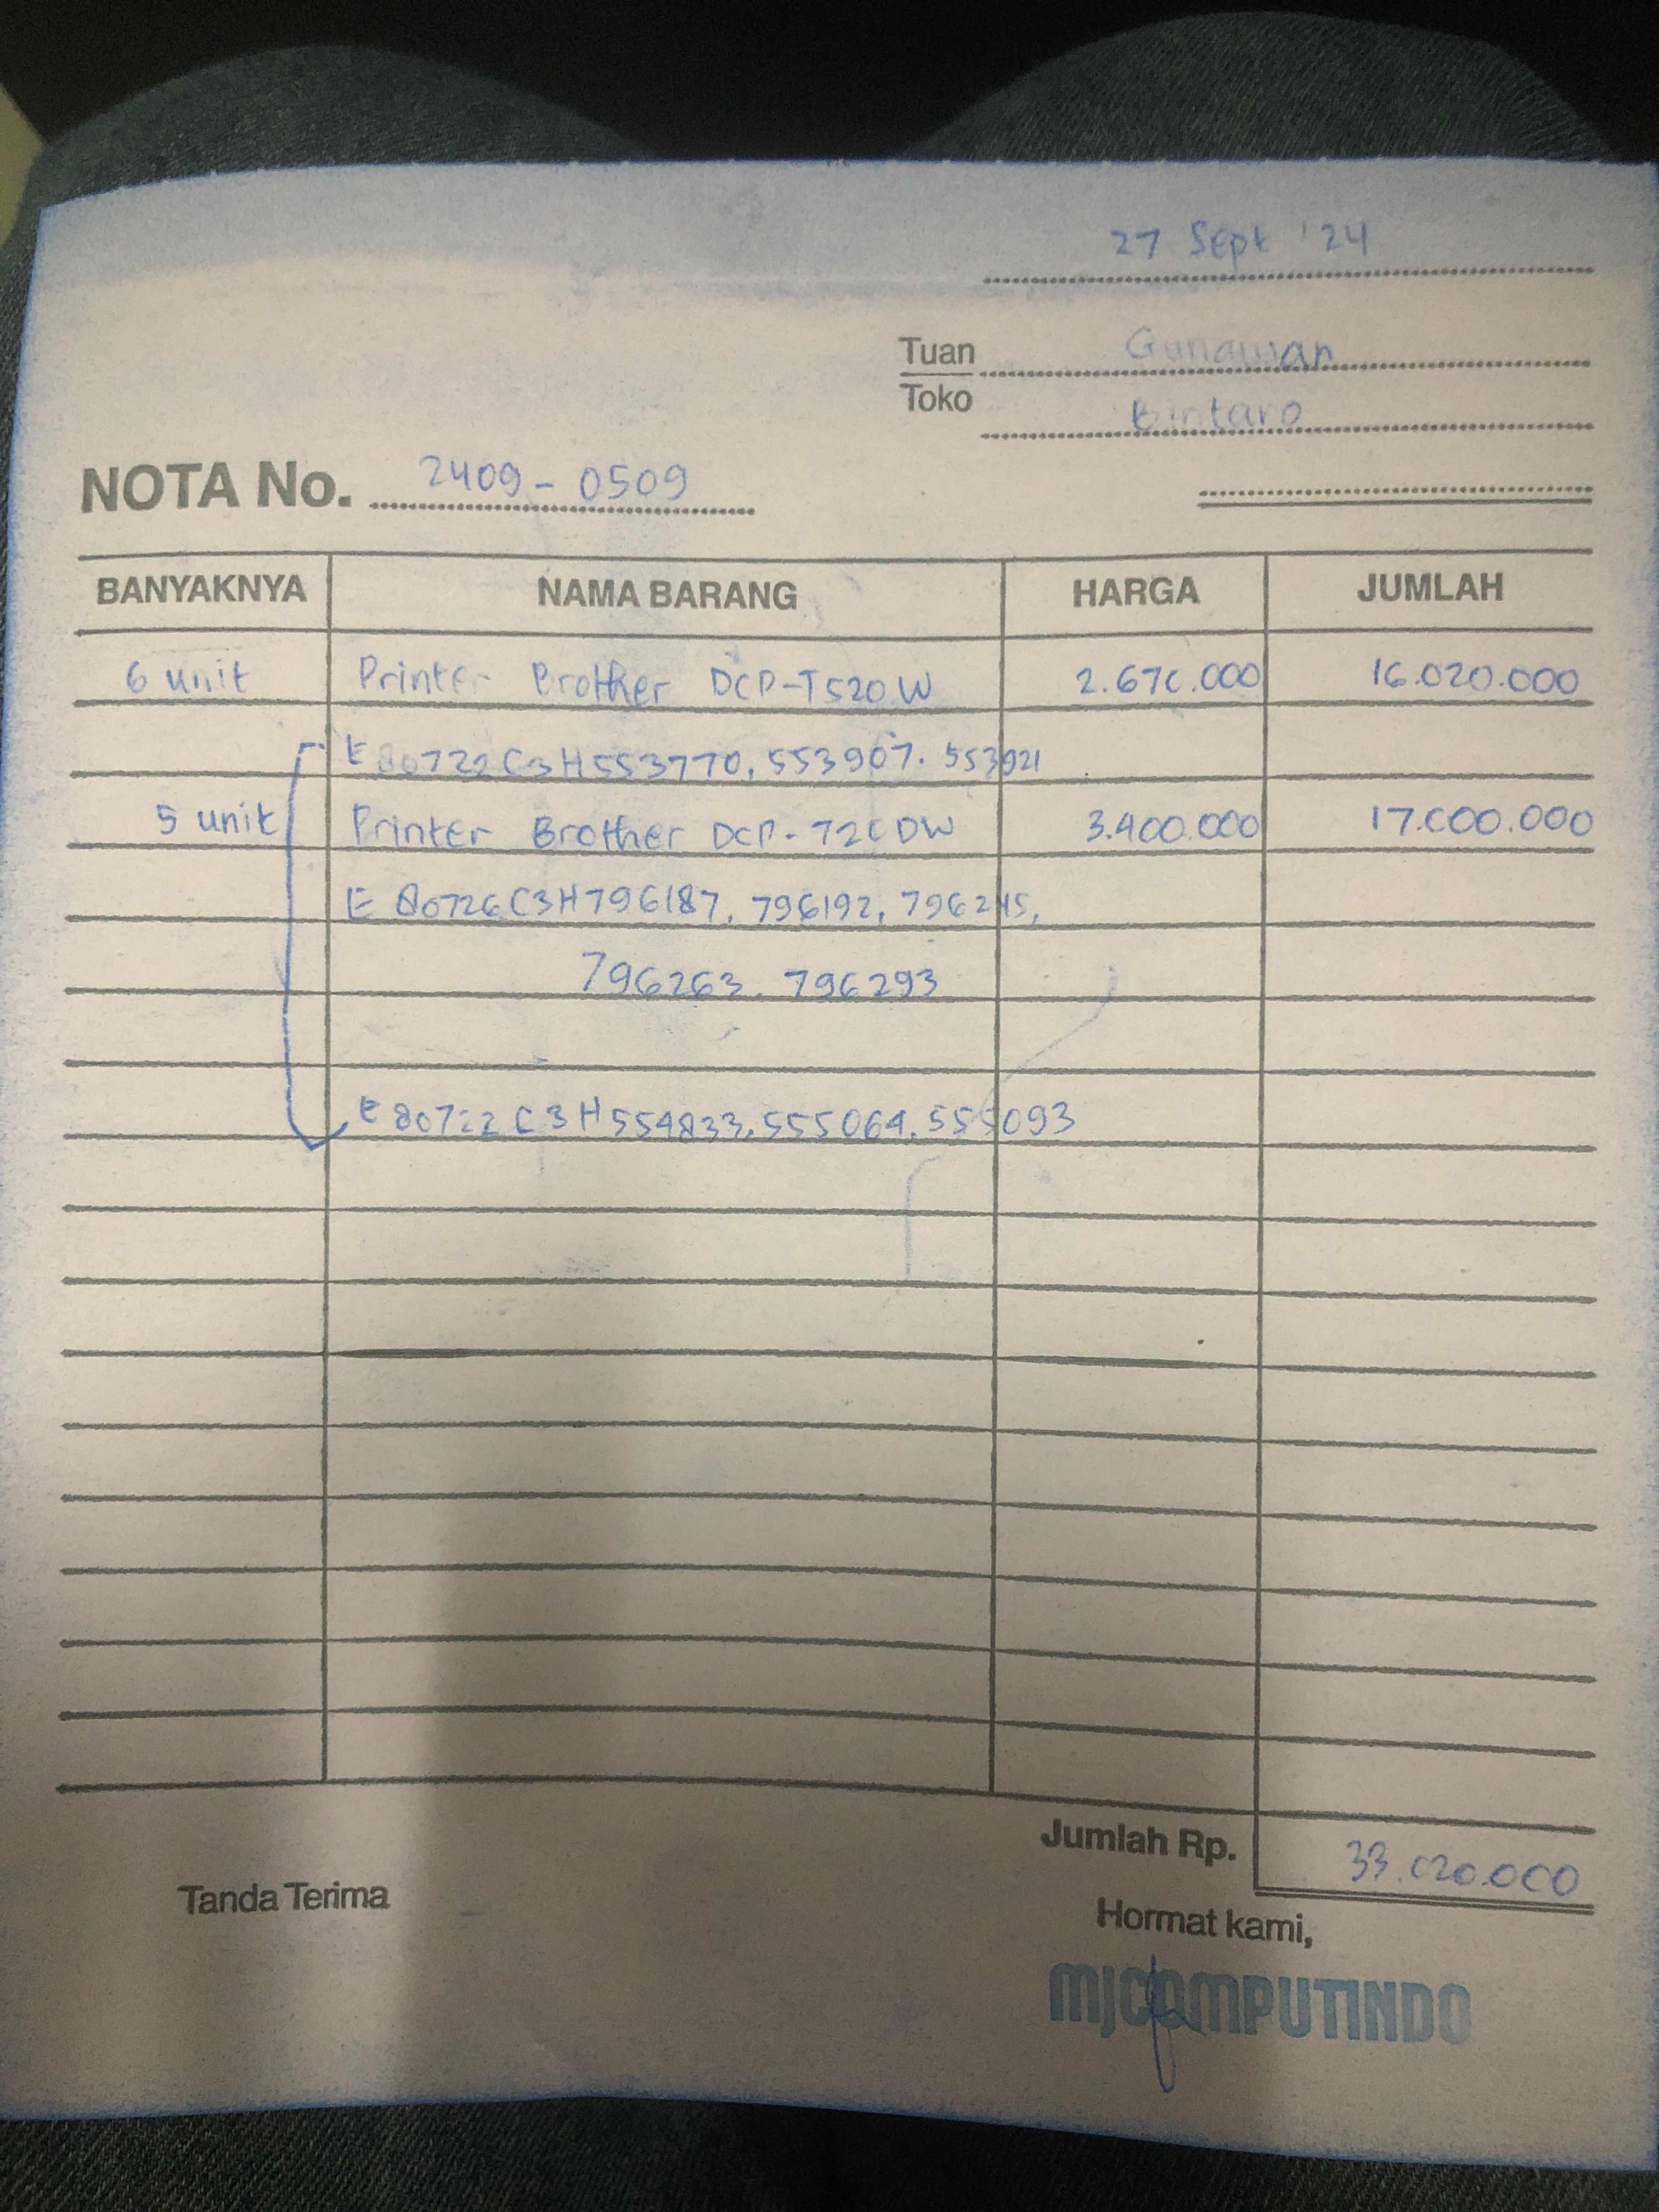 27 Sept '24
Tuan Gunawan
Toko Bintaro
NOTA No. 2409-0509
BANYAKNYA NAMA BARANG HARGA JUMLAH
6 unit Printer Brother DCP-T520W 2.670.000 16.020.000
E80722C3H553770, 553907. 553921
5 unit Printer Brother DCP-720DW 3.400.000 17.000.000
E80726C3H796187, 796192, 796245,
796263. 796293
E80722C3H554833, 555064, 555093
Jumlah Rp. 33.020.000
Tanda Terima
Hormat kami,
MJCOMPUTINDO